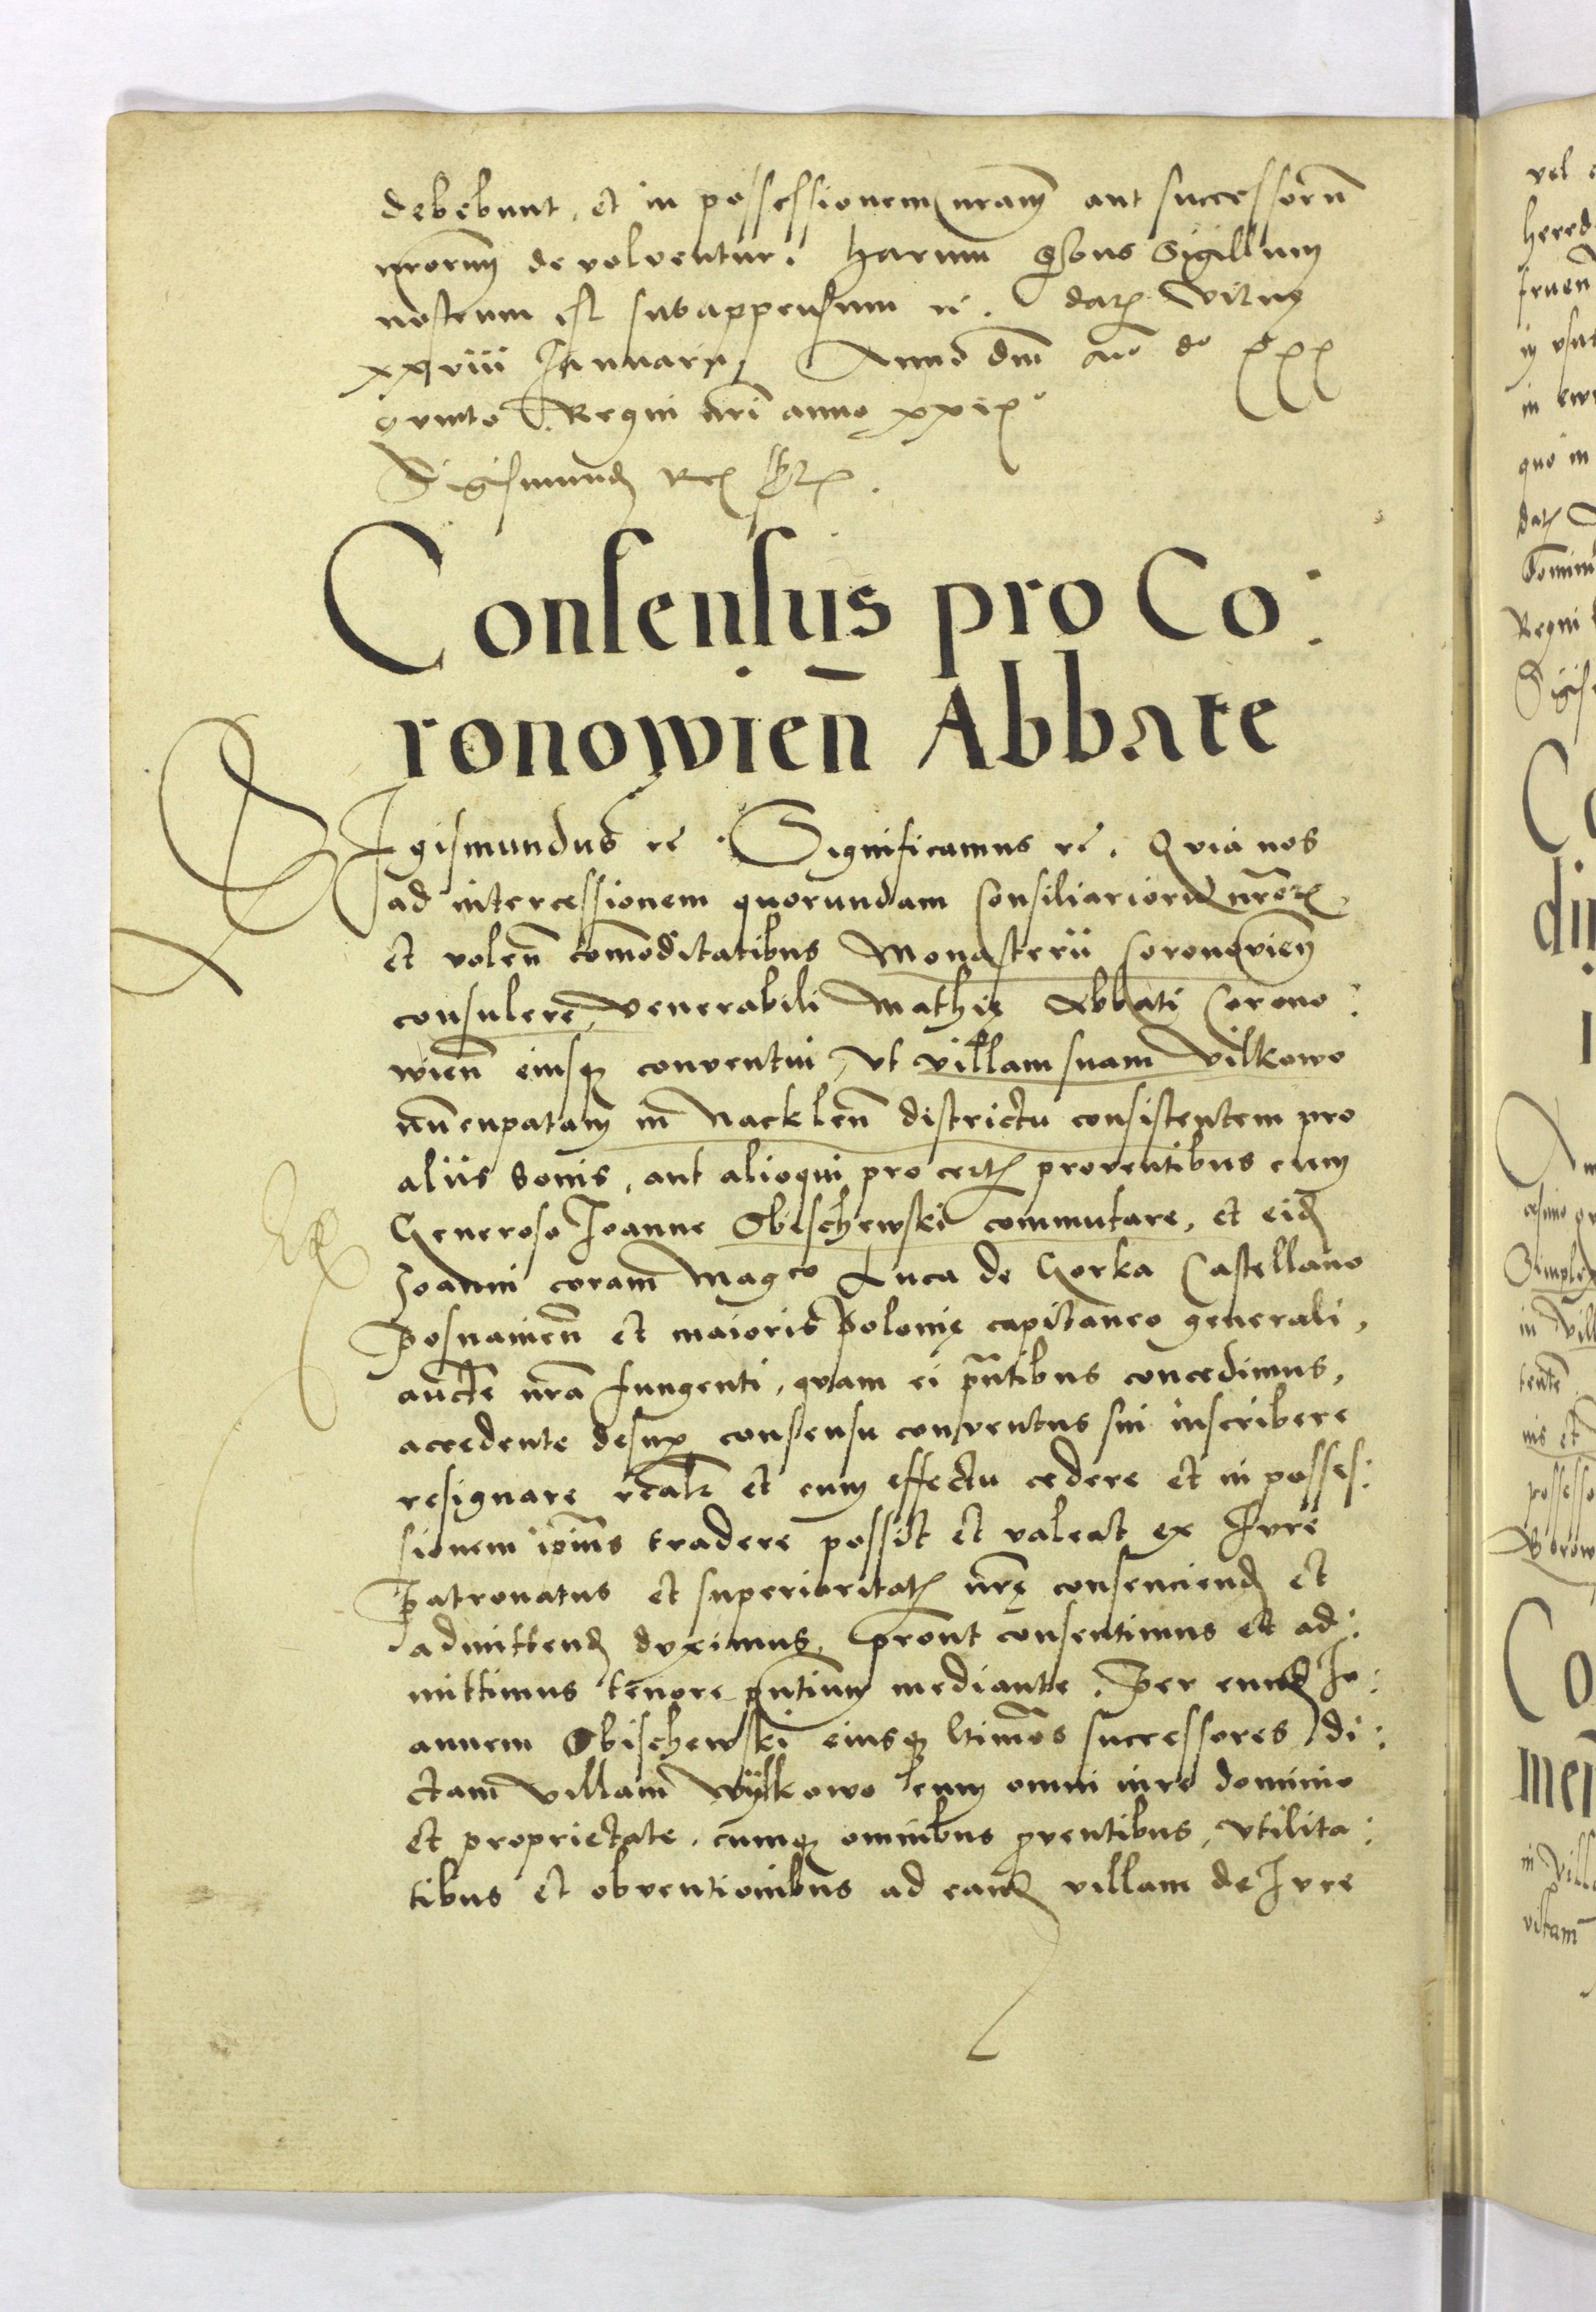 debebunt, et in possessionem nram̄ aut successorū
nrorum̄ devolventur. Harum quibus Sigillum
nostrum est subappensum rc̄. Datꝭ Vilnę
xxviii Januarii, Anno dnī Mo do xxx
quinto Regni nrī anno xxixo
Sigismundꝰ Rex sst.
Consensus pro Co:
ronowień Abbate
Sigismundus rc̄. Significamus rc̄. Quia nos
ad intercessionem quorundam Consiliariorū nrōrꝭ
et voleñ com̄oditatibus Monasterii Coronovieñ
consulere, venerabili Mathię Abbati Corono:
wieñ eiusqꝫ conventui, ut villam suam Vilkowo
nūcupatam in Nackleñ districtu consistentem pro
aliis bonis, aut alioqui pro certꝭ proventibus cum
Generoso Joanne Obieschewski commutare, et eidꝭ
Joanni coram Magco Luca de Gorka Castellano
Posnanieñ et maioris Polonię capitaneo generali,
aucte nrā fungenti, quam ei pn̄tibus concedimus,
accedente desuꝑ consensu conventus sui inscribere
resignare realr̄ et cum effectu cedere et in posses:
sionem ip̄ius tradere possit et valeat ex Jure
Patronatus et superioritatꝭ nrę̄ consenciendꝭ et
admittendꝭ duximus, prout consentimus et ad:
mittimus tenore pn̄tium mediante. Per eundꝭ Jo:
annem Obischewski eiusqꝫ ltimos successores di:
ctam villam Wÿlkowo cum omni iure dominio
et proprietate, cumqꝫ omnibus ꝓventibus, utilita:
tibus et obventionibus ad eandꝭ villam de Jure
vel
hered
in
quo in
datꝭ
Regni